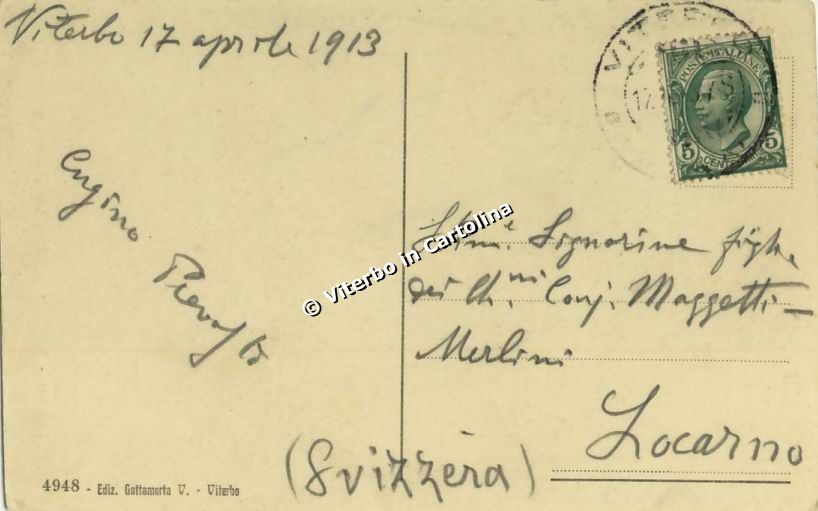 Viterbo 17 aprile 1913
Cugino
VITERBO
17
POSTE ITALIANE
5 CENT 5
Signorine figlie
dei Ch.mi Conj. Maggetti-
Merlini
Locarno
(Svizzera)
© Viterbo in Cartolina
4948 - Ediz. Gattamorta V. - Viterbo